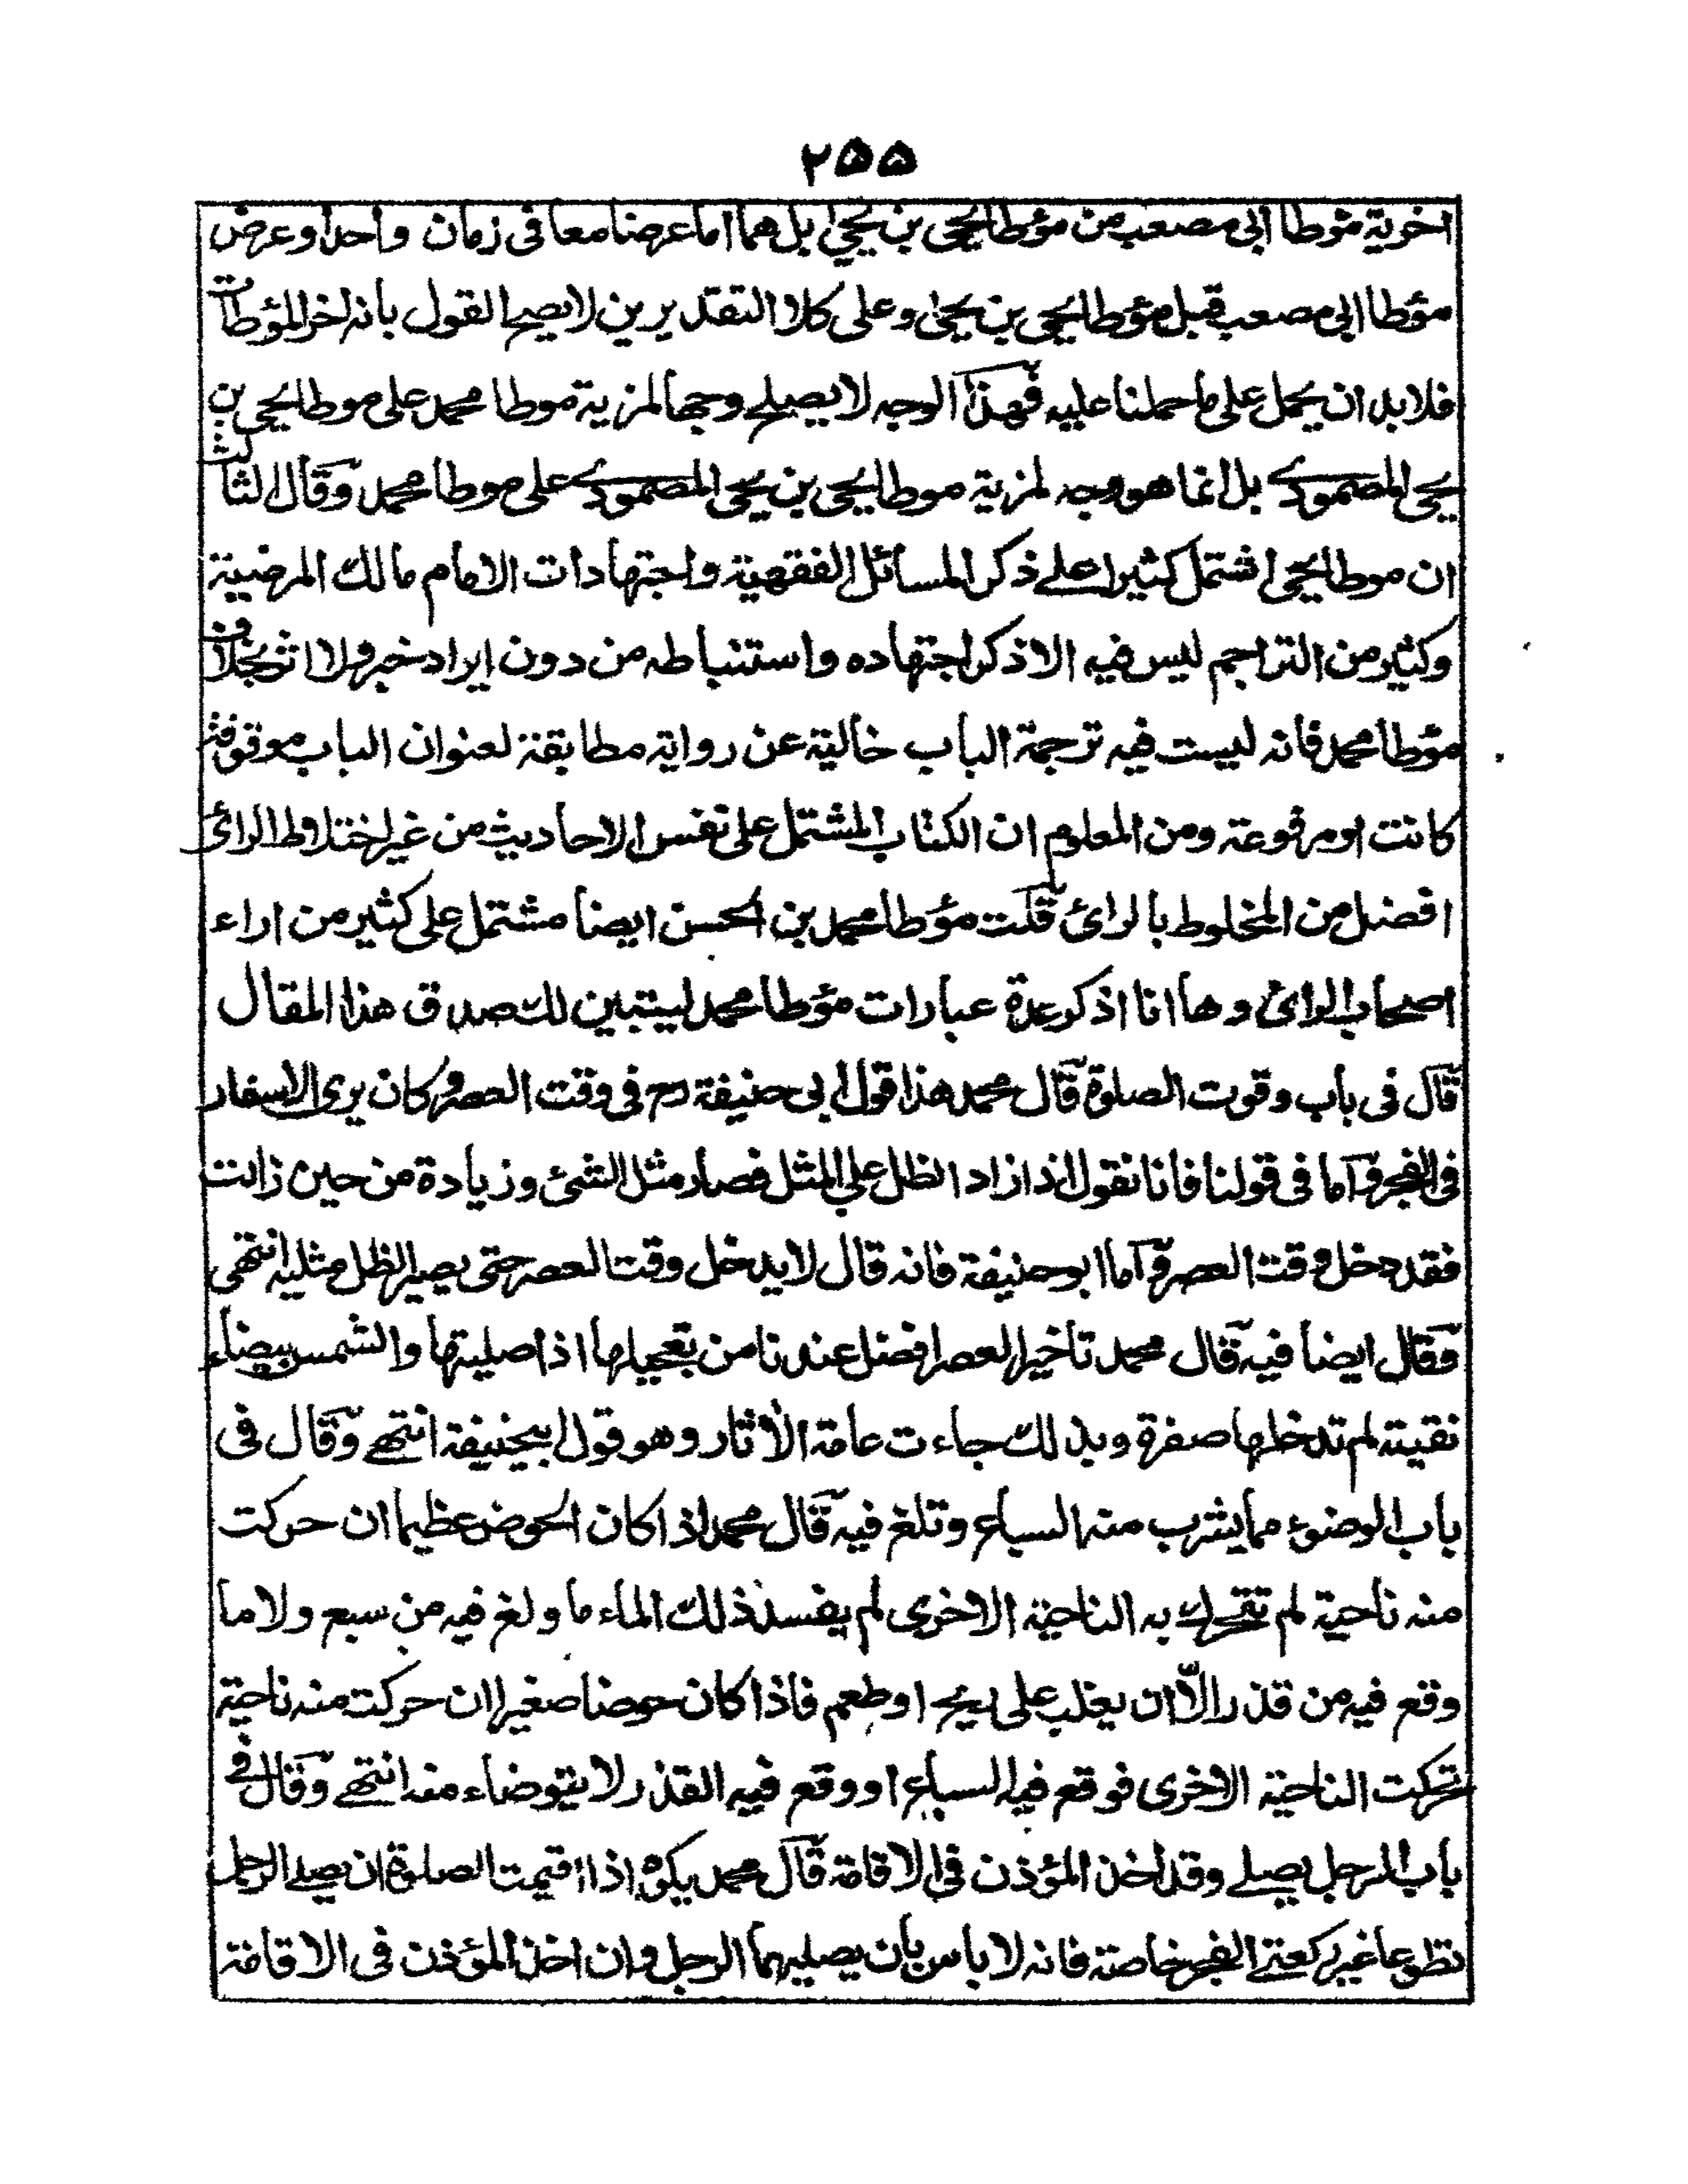 ٢٥٥
اخرية مؤطا ابى مصعب من مؤطا يحيى بن يحيى بل هما اما عرضا معا فى زمان واحد او عرض
مؤطا ابى مصعب قبل مؤطا يحيى بن يحيى وعلى كلا التقديرين لا يصح القول بانه اخر المؤطات
فلا بد ان يحمل على ما حملنا عليه فهذا الوجه لا يصلح وجها لمزية موطا محمد على موطا يحيى بن
يحيى المصمودے بل انما هو وجه لمزية موطا يحيى بن يحيى المصمودے على موطا محمد وقال الثالث
ان موطا يحيى اشتمل كثيرا علے ذكر المسائل الفقهية واجتهادات الامام مالك المرضية
وكثير من التراجم ليس فيه الا ذكر اجتهاده واستنباطه من دون ايراد خبر ولا اثر بخلاف
مؤطا محمد فانه ليست فيه ترجمة الباب خالية عن رواية مطابقة لعنوان الباب موقوفة
كانت او مرفوعة ومن المعلوم ان الكتاب المشتمل على نفس الاحاديث من غير اختلاط الرائ
افضل من المخلوط بالرائ قلت مؤطا محمد بن الحسن ايضا مشتمل على كثير من اراء
اصحاب الرائ وها انا اذكر عدة عبارات مؤطا محمد ليتبين لك صدق هذا المقال
قال فى باب وقوت الصلوة قال محمد هذا قول ابى حنيفة رح فى وقت العصر وكان يرى الاسفار
فى الفجر واما فى قولنا فانا نقول اذا زاد الظل على المثل فصار مثل الشئ وزيادة من حين زالت
فقد دخل وقت العصر واما ابو حنيفة فانه قال لا يدخل وقت العصر حتى يصير الظل مثليه انتهى
وقال ايضا فيه قال محمد تاخير العصر افضل عندنا من تعجيلها اذا صليتها والشمس بيضاء
نقية لم تدخلها صفرة وبذلك جاءت عامة الاثار وهو قول ابيحنيفة انتهے وقال فى
باب الوضوء مما يشرب منه السباع وتلغ فيه قال محمد اذا كان الحوض عظيما ان حركت
منه ناحية لم تتحرك به الناحية الاخرى لم يفسد ذلك الماء ما ولغ فيه من سبع ولا ما
وقع فيه من قذر الّا ان يغلب على ريح او طعم فاذا كان حوضا صغيرا ان حركت منه ناحية
تحركت الناحية الاخرى فوقع فيه السباع او وقع فيه القذر لا يتوضاء منه انتهے وقال فے
باب الرجل يصلے وقد اخذ المؤذن فى الاقامة قال محمد يكره اذا اقيمت الصلوة ان يصلے الرجل
تطوعا غير ركعتے الفجر خاصة فانه لا باس بان يصليهما الرجل وان اخذ المؤذن فى الاقامة